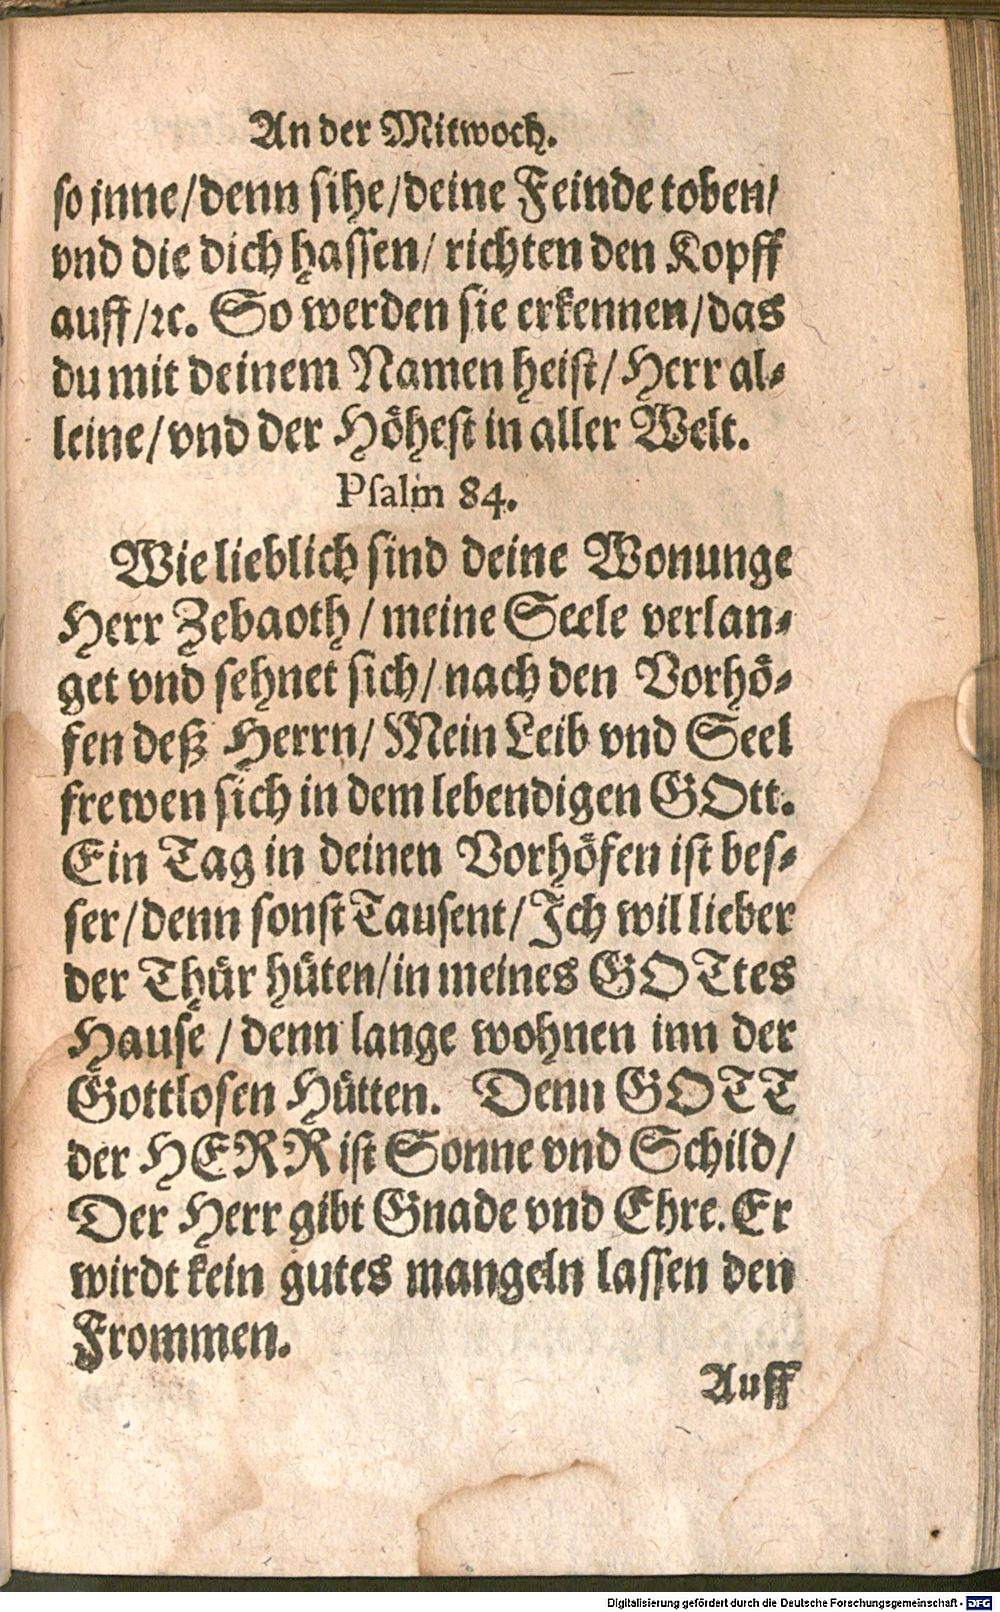 An der Mitwoch.
so jnne/denn sihe/deine Feinde toben/
vnd die dich hassen/ richten den Kopff
auff/ꝛc. So werden sie erkennen/das
du mit deinem Namen heist/ Herr al-
leine/vnd der Höhest in aller Welt.
Psalm 84.
Wie lieblich sind deine Wonunge
Herr Zebaoth / meine Seele verlan-
get vnd sehnet sich/ nach den Vorhö-
fen deß Herrn/ Mein Leib vnd Seel
frewen sich in dem lebendigen GOtt.
Ein Tag in deinen Vorhöfen ist bes-
ser/denn sonst Tausent/ Jch wil lieber
der Thür hüten/in meines GOTtes
Hause / denn lange wohnen inn der
Gottlosen Hütten. Denn GOTT
der HERR ist Sonne vnd Schild/
Der Herr gibt Gnade vnd Ehre. Er
wirdt kein gutes mangeln lassen den
Frommen.
Auff
Digitalisierung gefördert durch die Deutsche Forschungsgemeinschaft - DFG